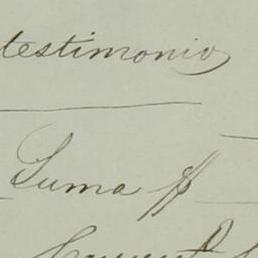 testimonio
Suma $